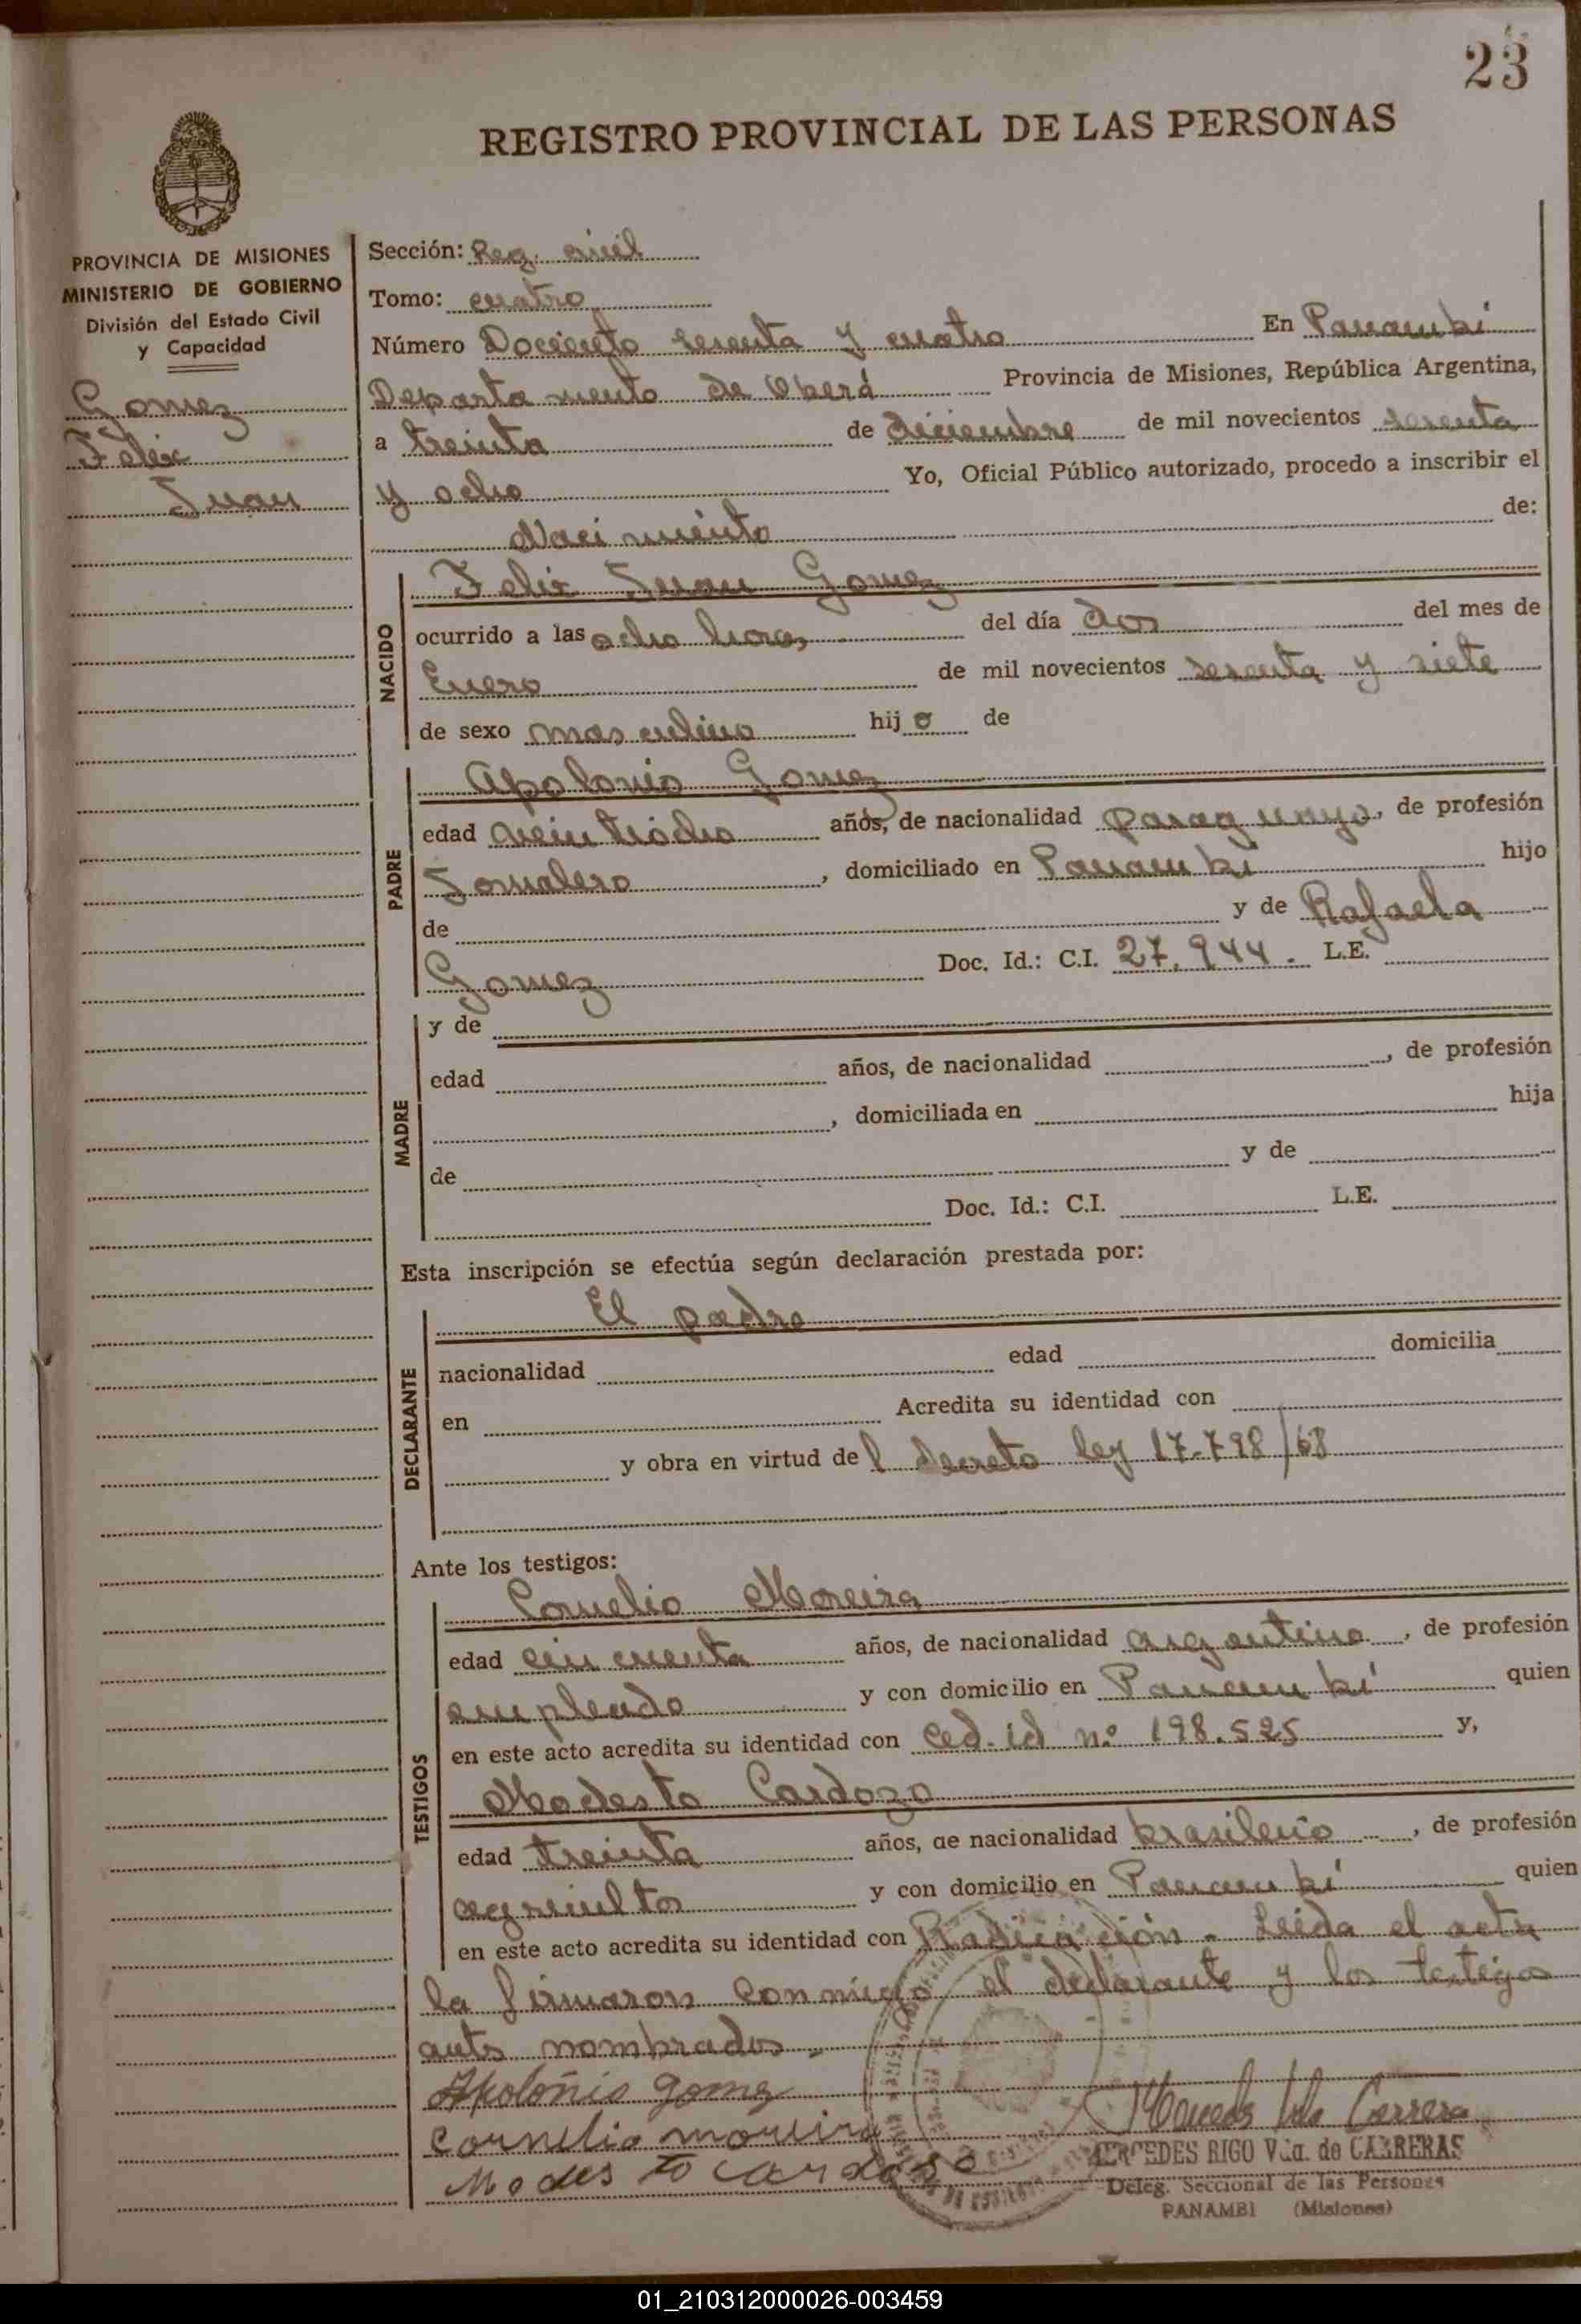 23
REGISTRO PROVINCIAL DE LAS PERSONAS
PROVINCIA DE MISIONES
MINISTERIO DE GOBIERNO
División del Estado Civil
y Capacidad
Gomez
Felix
Juan
Sección: Reg. civil
Tomo: cuatro
Número Dociento sesenta y cuatro En Panambí
Departamento de Oberá Provincia de Misiones, República Argentina,
a treinta de diciembre de mil novecientos sesenta
y ocho Yo, Oficial Público autorizado, procedo a inscribir el
Nacimiento de:
NACIDO
Felix Juan Gomez
ocurrido a las ocho horas del día dos del mes de
Enero de mil novecientos sesenta y siete
de sexo masculino hijo de
PADRE
Apolonio Gomez
edad veintiocho años, de nacionalidad paraguayo, de profesión
Jornalero, domiciliado en Panambí hijo
de y de Rafaela
Gomez Doc. Id.: C.I. 27.944. L.E.
MADRE
y de
edad años, de nacionalidad , de profesión
, domiciliada en hija
de y de
Doc. Id.: C.I. L.E.
Esta inscripción se efectúa según declaración prestada por:
DECLARANTE
El padre
nacionalidad edad domicilia
en Acredita su identidad con
y obra en virtud del decreto ley 17.798/68
Ante los testigos:
TESTIGOS
Cornelio Moreira
edad cincuenta años, de nacionalidad argentino, de profesión
empleado y con domicilio en Panambí quien
en este acto acredita su identidad con Ced. id nº 198.525 y,
Modesto Cardozo
edad treinta años, de nacionalidad brasileño, de profesión
agricultor y con domicilio en Panambí quien
en este acto acredita su identidad con Radicación - Leida el acta
la firmaron conmigo el declarante y los testigos
ants nombrados -
Apolonio gomez
Cornelio moreira
Modesto Cardoso
Mercedes Vda Carrera
MERCEDES RIGO Vda. de CARRERAS
Deleg. Seccional de las Personas
PANAMBI (Misiones)
01_210312000026-003459